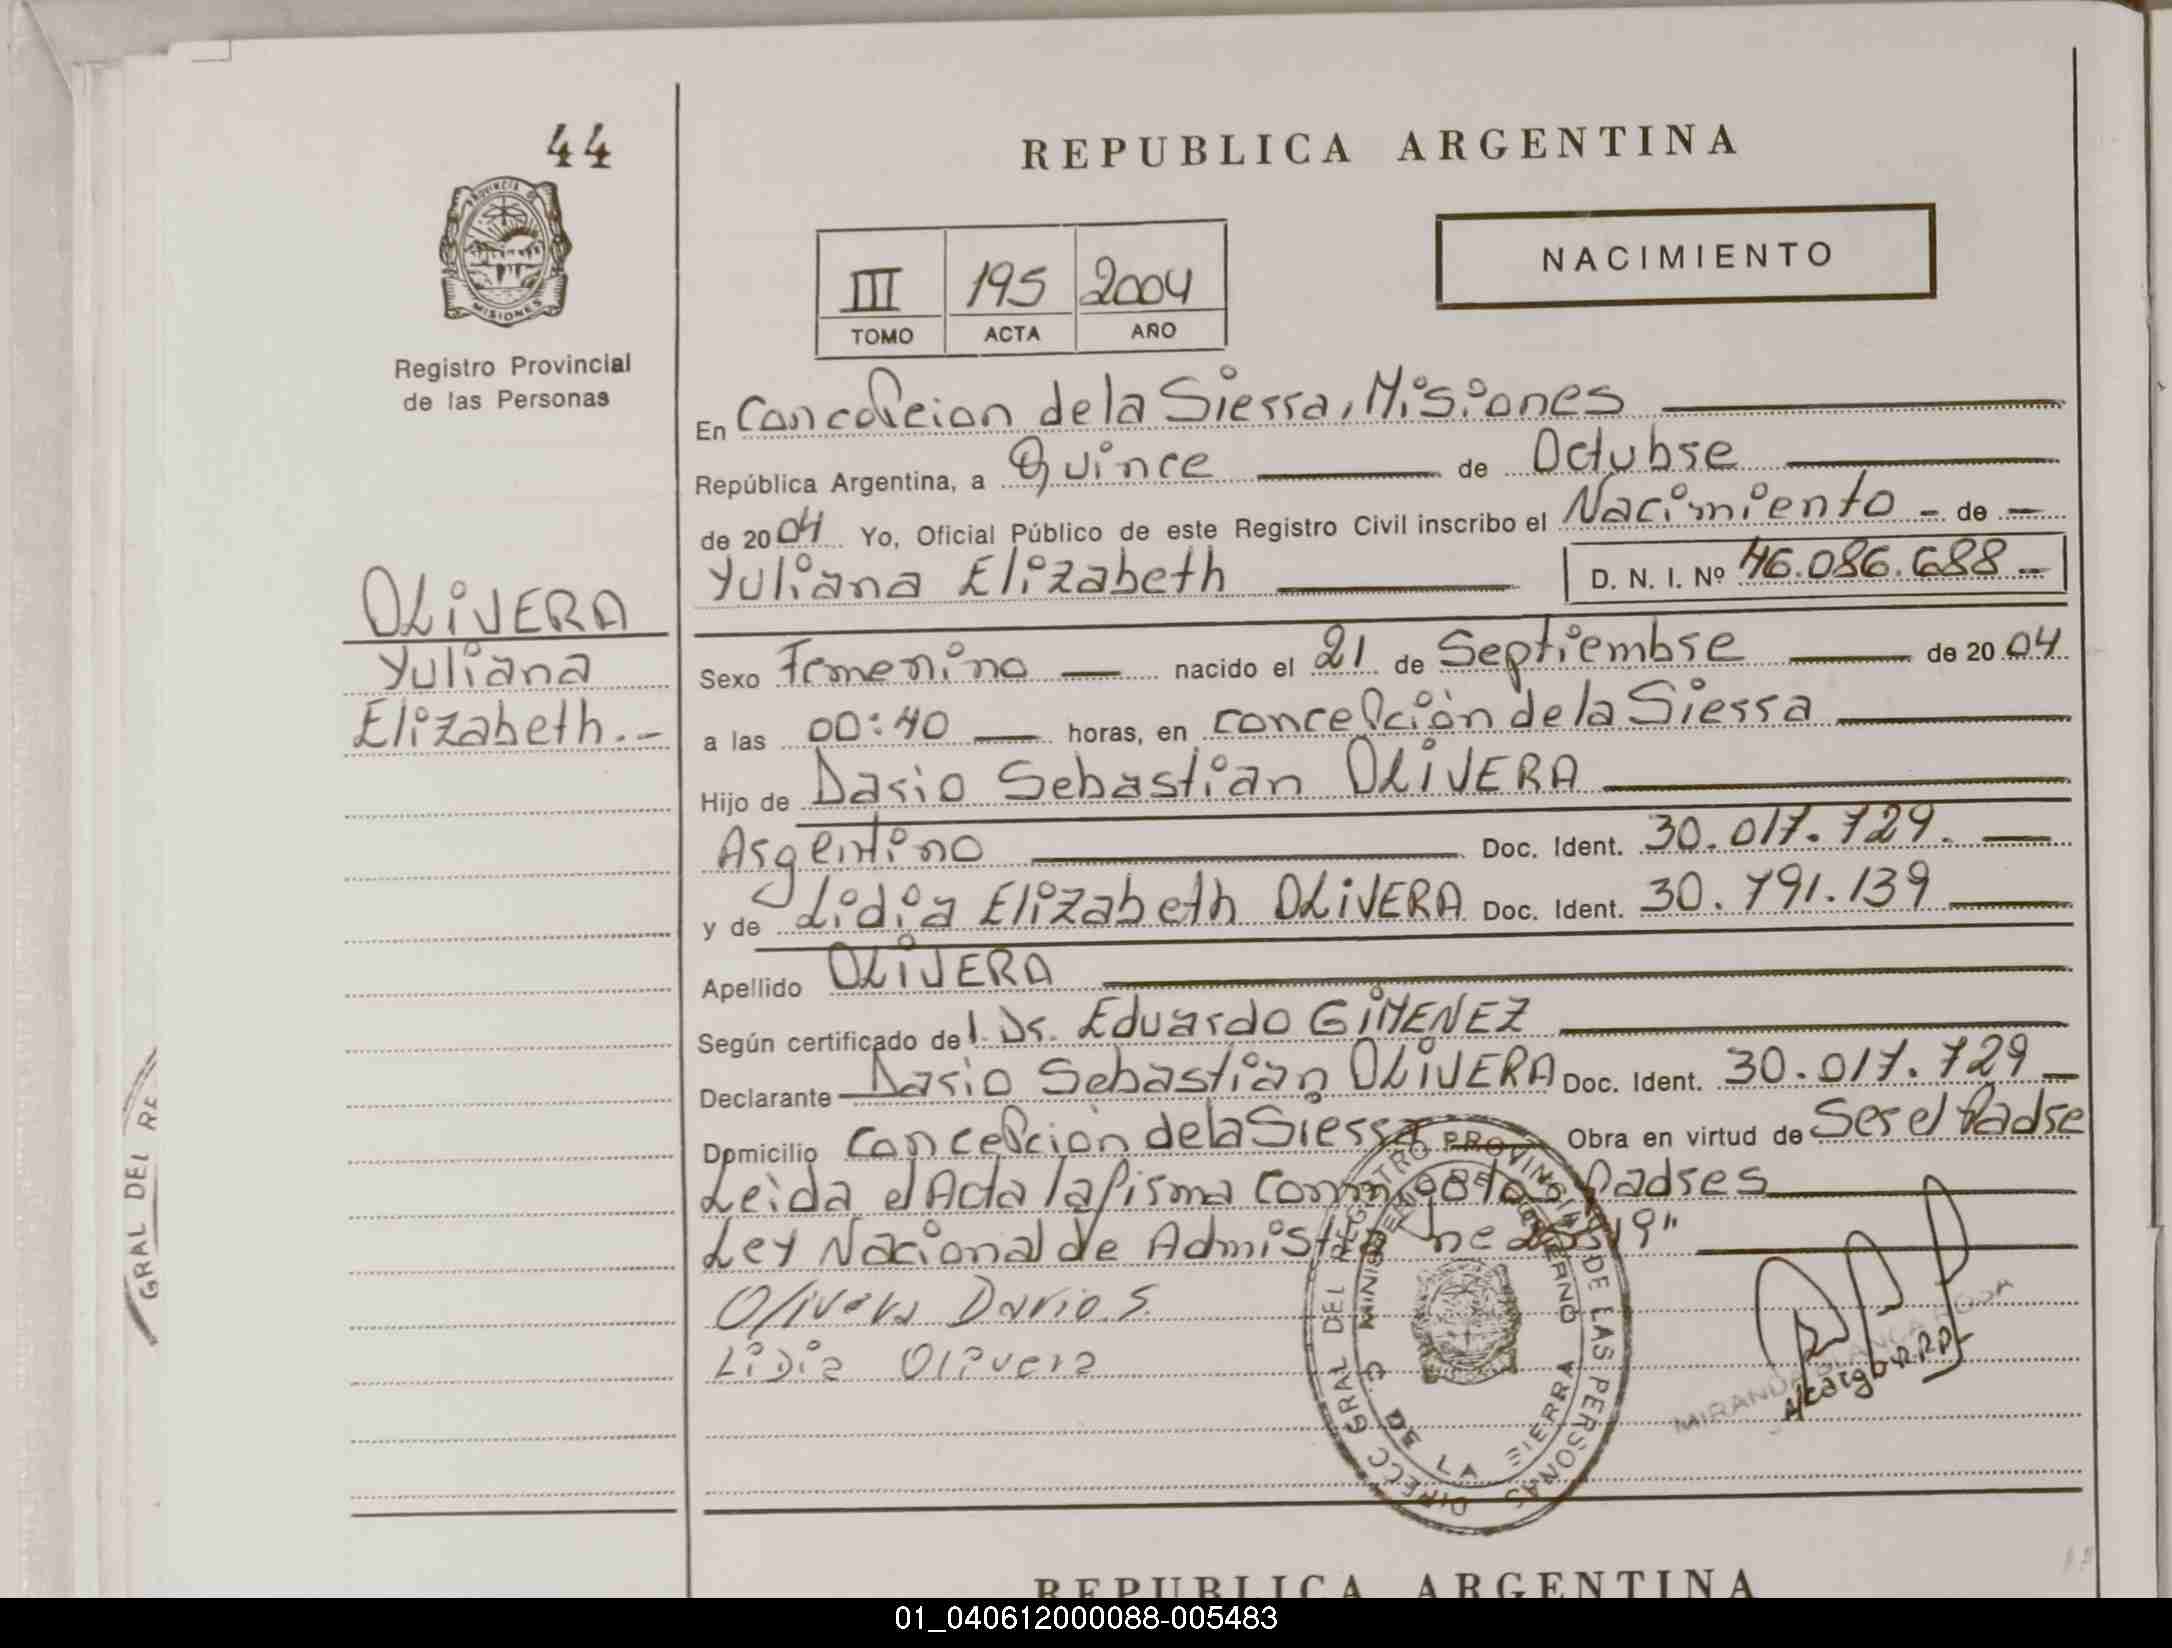 44
REPUBLICA ARGENTINA
PROVINCIA DE
MISIONES
Registro Provincial
de las Personas
NACIMIENTO
III 195 2004
TOMO ACTA AÑO
En Concepcion de la Sierra, Misiones
República Argentina, a Quince de Octubre
de 2004 Yo, Oficial Público de este Registro Civil inscribo el Nacimiento - de -
Yuliana Elizabeth D. N. I. Nº 46.086.688 -
OLiVERA
Yuliana
Elizabeth.-
Sexo Femenino nacido el 21 de Septiembre de 2004
a las 00:40 horas, en concepción de la Sierra
Hijo de Dario Sebastian OLiVERA
Argentino Doc. Ident. 30.017.729.
y de Lidia Elizabeth OLiVERA Doc. Ident. 30.791.139
Apellido OLiVERA
Según certificado de l. Dr. Eduardo GiMENEZ
Declarante Dario Sebastian OLiVERA Doc. Ident. 30.017.729
Domicilio concepción de la Sierra Obra en virtud de Ser el Padre
Leida el Acta la firma Padres
Ley Nacional de
Olivera Dario S.
Lidia Olivera
DIRECC GRAL DEL REGISTRO PROVINCIAL DE LAS PERSONAS
MINISTERIO DE GOBIERNO
C. DE LA SIERRA
MIRANDA BLANCA ROSA
A/cargo R.P.P.
GRAL DEL RE
REPUBLICA ARGENTINA
01_040612000088-005483